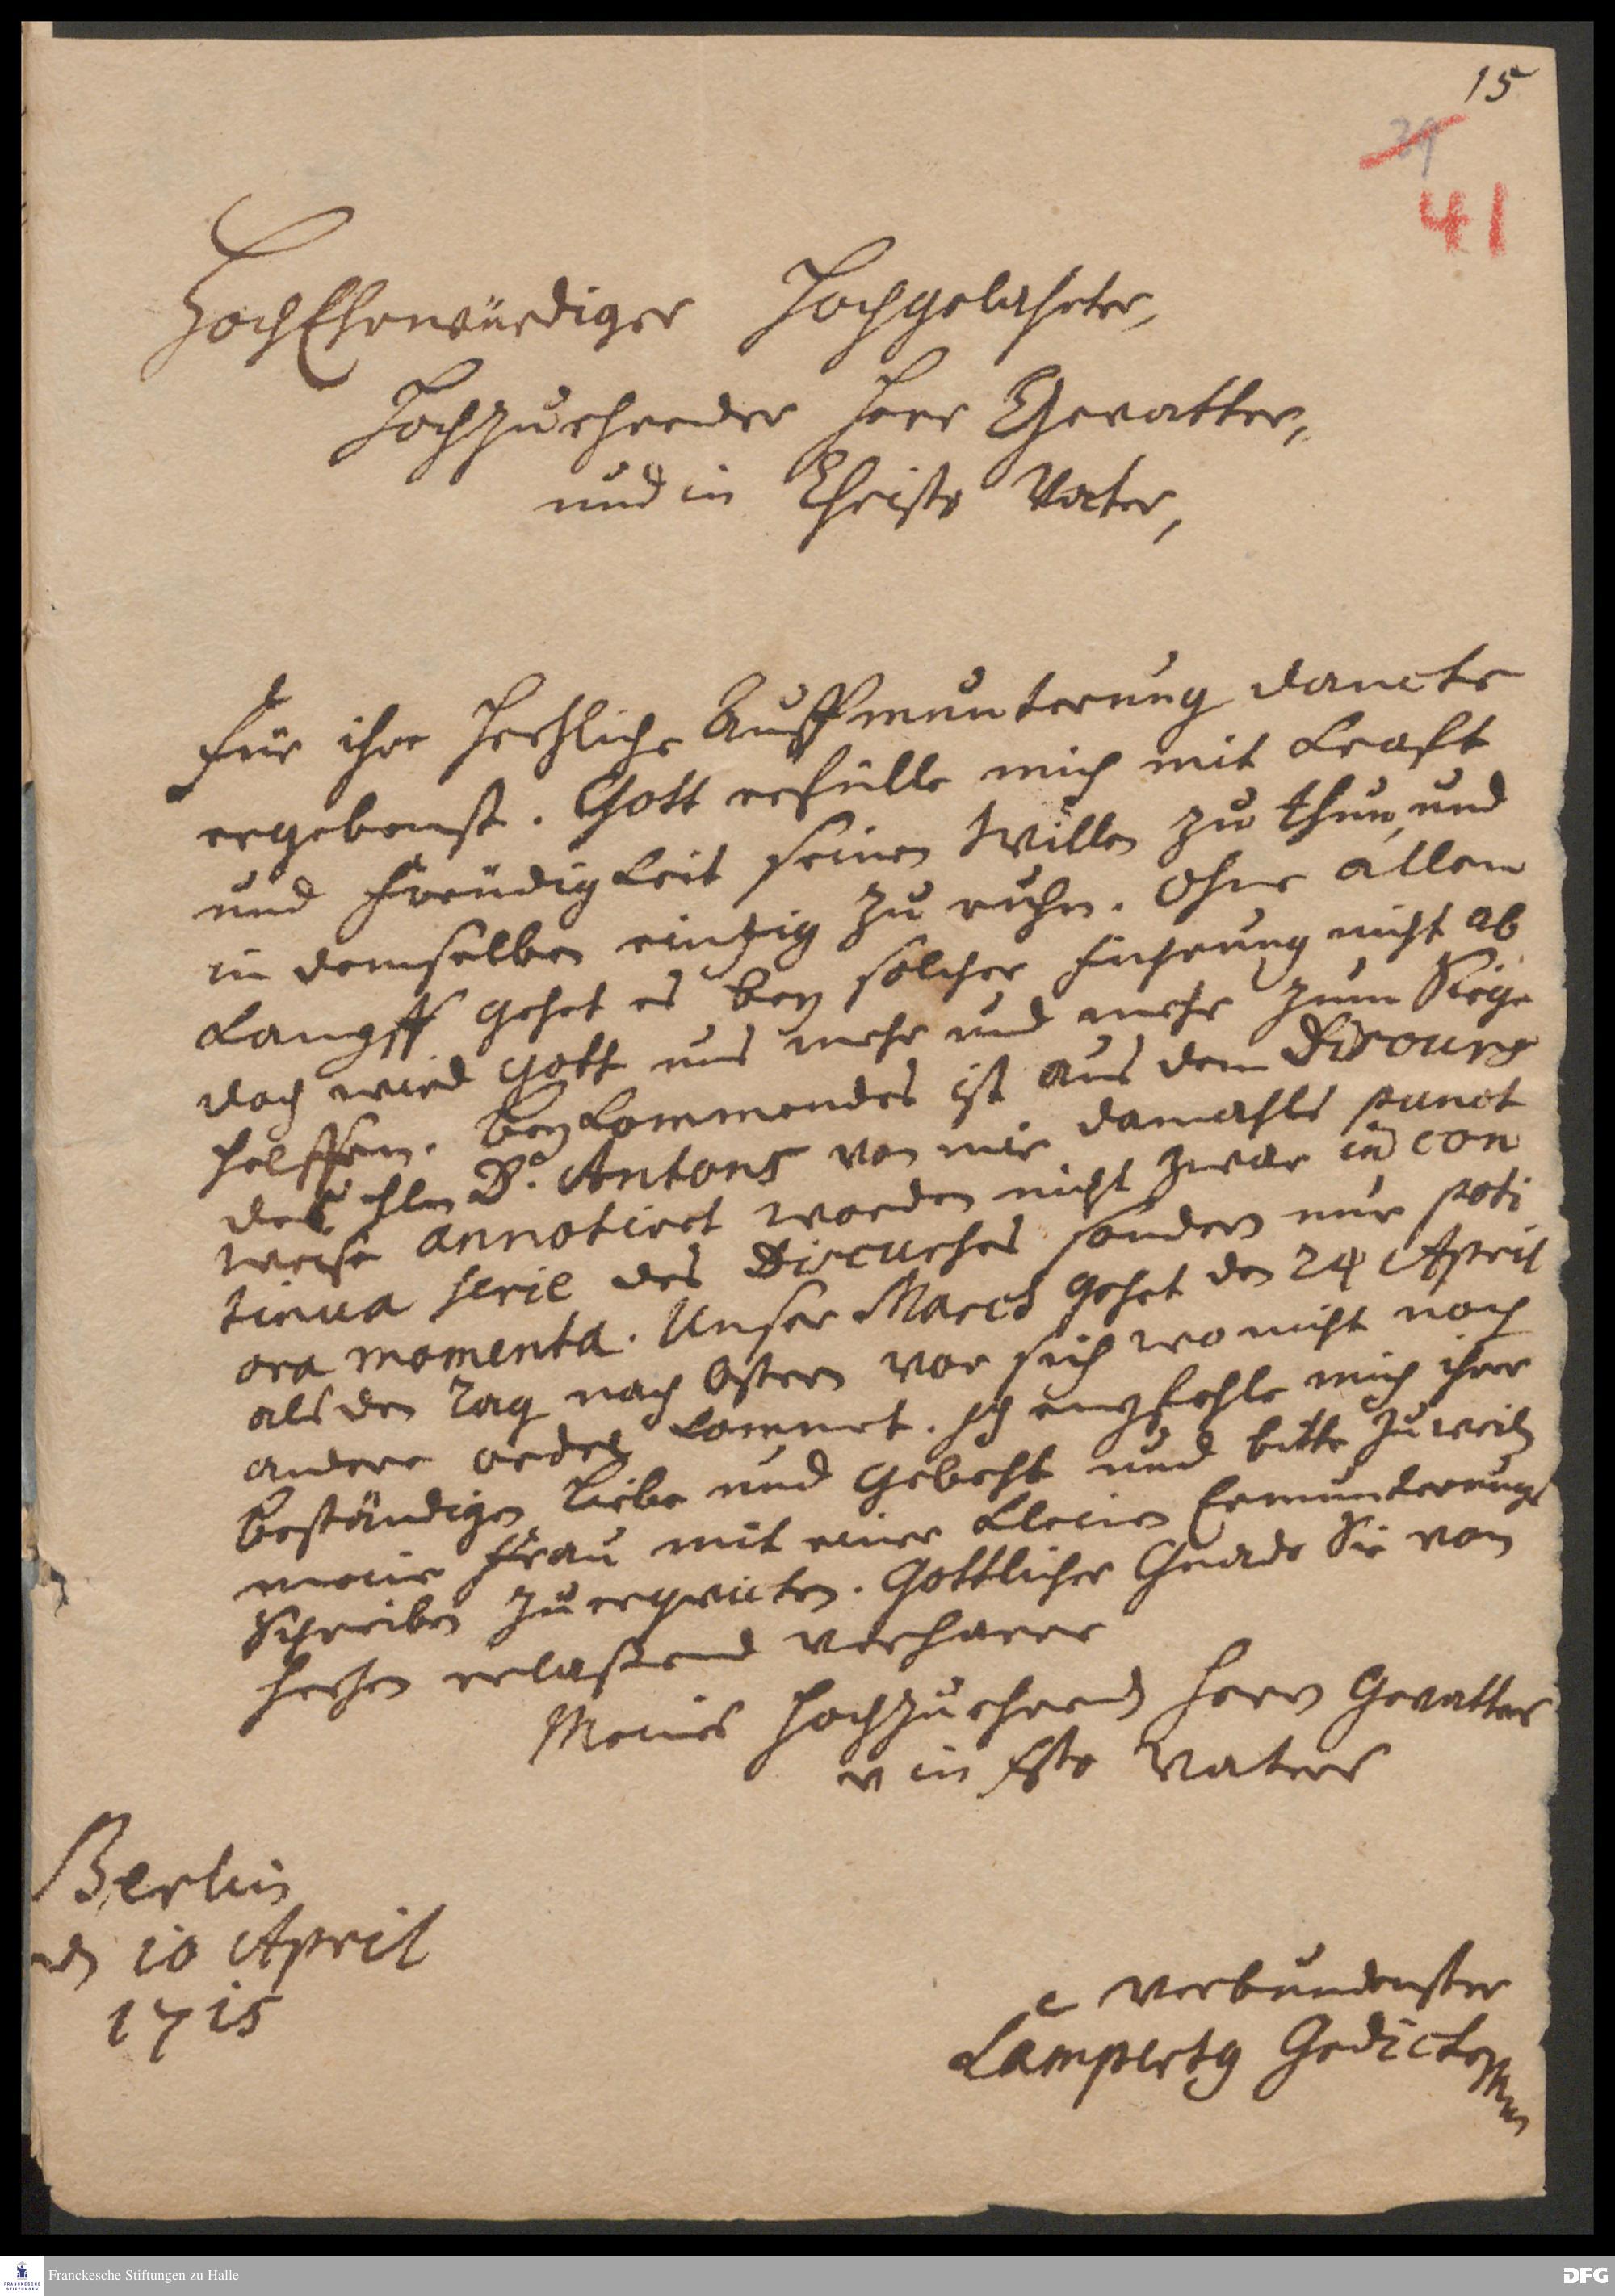 15
39
41
HochEhrwürdiger Hochgelahrter,
Hochzuehrender Herr Gevatter,
und in Christo Vater,
für ihre hertzliche Auffmunterung dancke
ergebenst. Gott erfülle mich mit Krafft
und freüdigkeit seinen Willen zu thun, und
in demselben eintzig zu ruhn. Ohne allen
Kampff gehet es bey solcher führung nicht ab
doch wird Gott uns mehr und mehr zum Siege
helffen. Beykommendes ist aus dem Discours
des D. Antons von mir damahls punct
weise annotiret worden nicht zwar in con
tinua serie des Discurses sondern nur poti
ora momenta. Unser March gehet den 24 April
als den Tag nach Ostern vor sich wo nicht noch
andere order kommet. Ich empfehle mich ihrer
beständigen Liebe und Gebeht und bitte zuweiln
meine Frau mit einer kleinen Ermunterungs
Schreiben zu erqvicken. Gottlicher Gnade Sie von
hertzen erlaßend verharre
Meines Hochzuehrend Herrn Gevatter
u in Xsto Vaters
Berlin
d 10 April
1715
verbundenster
Lampertg Gedicke